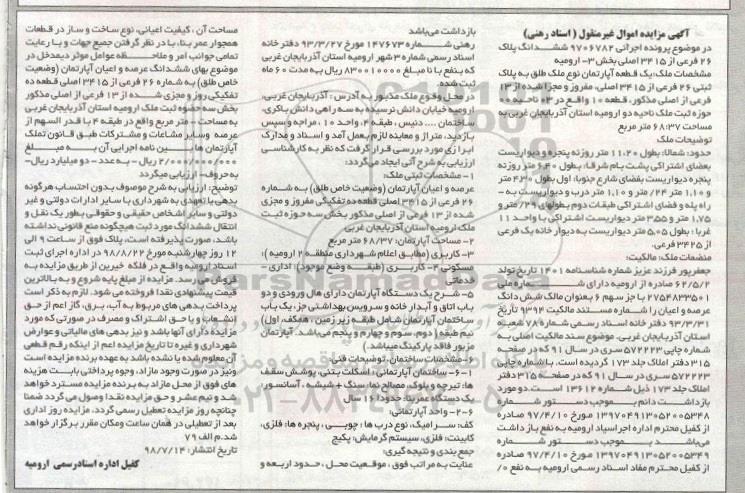 آگهی مزایده اموال غیرمنقول ( اسناد رهنی)
در موضوع پرونده اجرائی ۹۷۰۶۷۸۲ ششدانگ پلاک
۲۶ فرعی از ۳۴۱۵ اصلی بخش ۳- ارومیه
مشخصات ملک: یک قطعه آپارتمان نوع ملک طلق به پلاک
ثبتی ۲۶ فرعی از ۳۴۱۵ اصلی، مفروز و مجزا شده از ۱۳
فرعی از اصلی مذکور، قطعه ۱۰ واقع در ۰۳ ناحیه ۰۰
حوزه ثبت ملک ناحیه دو ارومیه استان آذربایجان غربی به
مساحت ۶۸:۳۷ متر مربع
توضیحات ملک
حدود: شمالا: بطول ۱۱:۲۰ متر روزنه پنجره و دیواریست
بفضای اشتراکی پشت بام شرقا: بطول ۶:۴۰ متر روزنه
پنجره دیواریست بفضای شارع جنوبا: اول بطول ۴:۳۰ متر
و ۱,۱۰ متر /۲۴ متر و ۱,۱۰ متر درب و دیواریست به -
راه پله و فضای اشتراکی طبقات دوم بطولهای /۲۹ متر و
۱,۷۵ متر و ۳,۵۵ متر دیواریست اشتراکی با واحد ۱۱
غربا : بطول ۵,۰۵ متر دیواریست به دیوار خانه یک فرعی
از ۳۴۲۵ فرعی.
منضمات ملک: مالکیت:
جعفرپور فرزند عزیز شماره شناسنامه ۱۴۰۱ تاریخ تولد
۶۲/۵/۲ صادره از ارومیه دارای شماره ملی
۲۷۵۴۸۳۳۵۰۱ با جز سهم ۶ بعنوان مالک شش دانگ
عرصه و اعیان با شماره مستند مالکیت ۹۳۹۴ تاریخ
۹۳/۳/۳۱ دفتر خانه اسناد رسمی شماره ۷۸ شعبه
استان آذربایجان غربی، موضوع سند مالکیت اصلی به
شماره چاپی ۵۷۲۲۲۳ سری د سال ۹۱ که در صفحه
۳۱۵ دفتر املاک جلد ۱۷۳ گردیده است. با شماره چاپی
۵۷۲۲۲۳ سری د سال ۹۱ که در صفحه ۳۱۵ دفتر
املاک جلد ۱۷۳ ذیل شماره ۱۳۶۱۲ است. دو مورد
بازداشت دائم بموجب دستور شماره
۱۳۹۷۰۴۹۱۳۰۵۲۰۰۵۳۴۸ مورخ ۹۷/۴/۱۰ صادره
از کفیل محترم اداره اجرا سیاد ارومیه به نفع بازداشت
میباشد بموجب دستور شماره
۱۳۹۷۰۴۹۱۳۰۵۲۰۰۵۳۴۹ مورخ ۹۷/۴/۱۰ صادره
از کفیل محترم مفاد اسناد رسمی ارومیه به نفع /۰
بازداشت می‌باشد
رهنی شماره ۱۴۷۶۷۳ مورخ ۹۳/۳/۲۷ دفتر خانه
اسناد رسمی شماره ۳ شهر ارومیه استان آذربایجان غربی
که بنفع با نا مبلغ ۸۳۰۰۱۰۰۰۰ ریال به مدت ۶۰ ماه
ثبت شده
در محل وقوع ملک مذکور به آدرس : آذربایجان غربی،
ارومیه خیابان دانش نرسیده به سه راهی دانش، باکری،
ساختمان .... دنیس، طبقه ۴، واحد ۱۰، مراجه و سپس
بازدید، متراژ و معاینه لازم بعمل آمد و اسناد و مدارک
ابرازی مورد بررسی قرار گرفت که نظر به کارشناسی
ارزیابی به شرح آتی ایجاد می‌گردد:
۱- مشخصات ثبتی ملک:
عرصه و اعیان آپارتمان (وضعیت خاص طلق) به شماره
۲۶ فرعی از ۳۴۱۵ اصلی قطعه ده تفکیکی مفروز و مجزی
شده از ۱۳ فرعی از اصلی مذکور بخش سه حوزه ثبت
ملک ارومیه استان آذربایجان غربی
۲- مساحت آپارتمان: ۶۸/۳۷ متر مربع
۳- کاربری (مطابق اعلام شهرداری منطقه ۲ ارومیه ):
مسکونی ۴- کاربری (طبقه وضع موجود): اداری -
خدماتی
۵- شرح یک دستگاه آپارتمان دارای هال ورودی و دو
باب اتاق و آبدار خانه و سرویس بهداشتی جز، یک باب
ساختمان آپارتمان شامل طبقه (زیر زمین، همکف، اول)
نیم طبقه (دوم، سوم و چهارم و پنجم می‌باشد. آپارتمان
مزبور فاقد پارکینگ میباشد.)
۶- مشخصات ساختمان، توضیحات فنی
۶-۱- ساختمان آپارتمانی : اسکلت بتنی، پوشش سقف
ها: تیرچه و بلوک، مصالح نما: سنگ + شیشه ، آسانسور
یک دستگاه عمر بنا: حدودا ۱۶ سال
۶-۲- واحد آپارتمانی:
کف: سرامیک، نوع درب ها : چوبی ، پنجره ها : فلزی،
کابینت: فلزی، سیستم گرمایش: پکیج
جمع بندی و نتیجه گیری:
عنایت به مراتب فوق ، موقعیت محل ، حدود اربعه و
مساحت آن ، کیفیت اعیانی، نوع ساخت و ساز در قطعات
همجوار عمر بنا، با در نظر گرفتن جمیع جهات و با رعایت
تمامی جوانب امر و ملاحظه عوامل موثر ذیمدخل در
موضوع بهای ششدانگ عرصه و اعیان آپارتمان (وضعیت
خاص طلق) به شماره ۲۶ فرعی از ۳۴۱۵ اصلی قطعه ده
تفکیکی و مجزی شده از ۱۳ فرعی از اصلی مذکور
بخش سه حوزه ثبت ملک ارومیه استان آذربایجان غربی
به مساحت - متر مربع واقع در طبقه ۴ با قدر السهم از
عرصه وسایر مشاعات و مشترکات طبق قانون تملک
آپارتمان ها و آیین نامه اجرایی آن به مبلغ
۲/۰۰۰/۰۰۰/۰۰۰ ریال - به عدد - دو میلیارد ریال-
به حروف- ارزیابی میگردد
توضیح: ارزیابی به شرح موصوف بدون احتساب هرگونه
بدهی یا تعهدی به شهرداری یا سایر ادارات دولتی و غیر
دولتی و سایر اشخاص حقیقی و حقوقی بطور یک نقل و
انتقال ششدانگ مورد ثبت هیچگونه منع قانونی نداشته
باشد، صورت پذیرفته است. پلاک فوق از ساعت ۹ الی
۱۲ روز چهارشنبه مورخ ۹۸/۸/۲۲ در اداره اجرای ثبت
اسناد ارومیه واقع در فلکه خیرین از طریق مزایده به
فروش می‌رسد. مزایده از مبلغ پایه شروع و به بالاترین
قیمت پیشنهادی نقدا فروخته می شود. لازم به ذکر است
پرداخت بدهی های مربوط به آب، برق، گاز اعم از حق
انشعاب و یا حق اشتراک و مصرف در صورتی که مورد
مزایده دارای آنها باشد و نیز بدهی های مالیاتی و عوارض
شهرداری و غیره تا تاریخ مزایده اعم از اینکه رقم قطعی
آن معلوم شده یا نشده باشد به عهده برنده مزایده است
و نیز در صورت وجود مازاد، وجوه پرداختی بابت هزینه
های فوق از محل مازاد به برنده مزایده مسترد خواهد
شد و نیم عشر و حق مزایده نقدا وصول می گردد ضمنا
چنانچه روز مزایده تعطیل رسمی گردد، مزایده روز اداری
بعد از تعطیلی در همان ساعت ومکان مقرر برگزار خواهد
شد. م الف ۷۹
تاریخ انتشار: ۹۸/۷/۱۴
کفیل اداره اسنادرسمی ارومیه